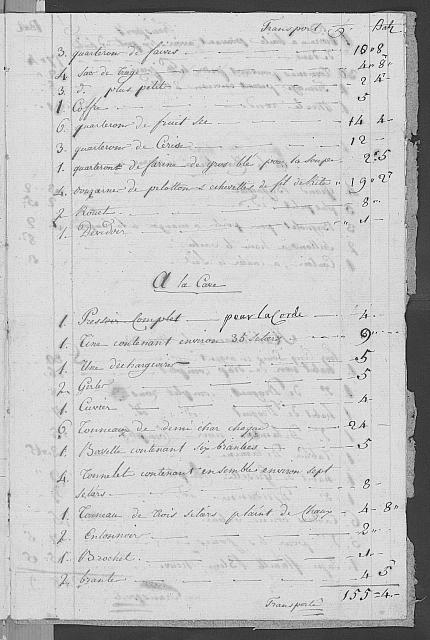 Transport f. Batz
3. quarteron de faives 10 8
4. Sac de 4 8
3. d. plus petit 2 4
1. Coffre 5
6. quarteron de fruit sec 14 4
3. quarterons de Cerise 12
1. quarteron de farine de gros blé pour la soupe 2 5
4. douzaine de pelotton & echevettes de fil de Rite 19 2
2. Rouet 8
1. Devidoir 1
A la Cave
1. Pressoir Complet pour la Corde 4
1. Cuve contenant environ 35 setiers 9
1. Une déchargeoire 5
2. Gerle 5
1. Cuvier 4
6. Tonneaux de demi char chaque 24
1. Bosselle contenant six brantées 5
4. Tonnelet contenant ensemble environ sept
setiers 8
1. Tonneau de trois setiers plaint de Chaux 4 8
2. Entonnoir 2
1. Brochet 1
2. brante 4 5
155 4
Transporté